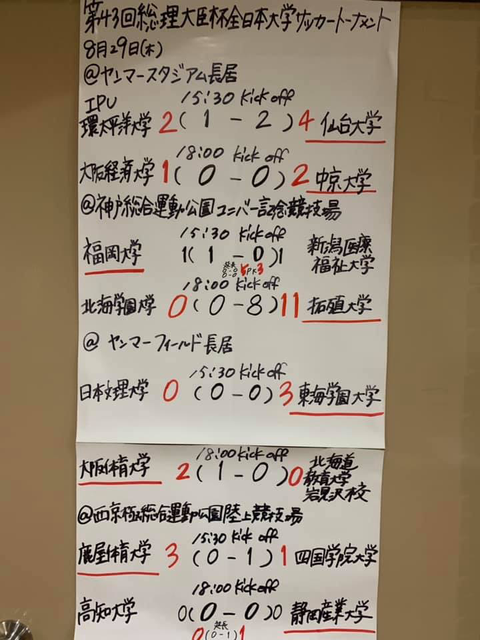 第43回総理大臣杯全日本大学サッカートーナメント
8月29日(木)
@ヤンマースタジアム長居
15:30 Kick off
IPU
環太平洋大学 2 (1 - 2) 4 仙台大学
18:00 Kick off
大阪経済大学 1 (0 - 0) 2 中京大学
@神戸総合運動公園ユニバー記念競技場
15:30 Kick off
福岡大学 1 (1 - 0) 1 新潟医療
福祉大学
延長
0-0
0-0 5PK3
18:00 Kick off
北海学園大学 0 (0 - 8) 11 拓殖大学
@ ヤンマーフィールド長居
15:30 Kick off
日本文理大学 0 (0 - 0) 3 東海学園大学
18:00 Kick off
大阪体育大学 2 (1 - 0) 0 北海道
教育大学
岩見沢校
@西京極総合運動公園陸上競技場
15:30 Kick off
鹿屋体育大学 3 (0 - 1) 1 四国学院大学
18:00 Kick off
高知大学 0 (0 - 0) 0 静岡産業大学
延長
0 (0-1) 1